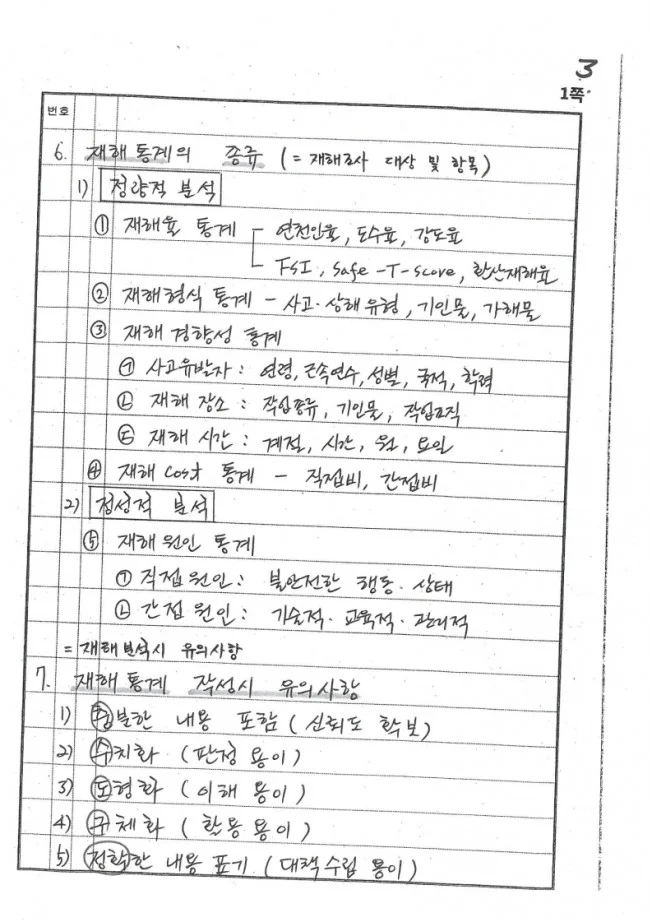 3
1쪽
번호
6. 재해통계의 종류 (= 재해조사 대상 및 항목)
1) 정량적 분석
① 재해율 통계 - 연천인율, 도수율, 강도율
- FSI, Safe-T-score, 환산재해율
② 재해형식 통계 - 사고·상해유형, 기인물, 가해물
③ 재해 경향성 통계
㉠ 사고유발자 : 연령, 근속연수, 성별, 국적, 학력
㉡ 재해 장소 : 작업종류, 기인물, 작업조직
㉢ 재해 시간 : 계절, 시간, 월, 요일
④ 재해 Cost 통계 - 직접비, 간접비
2) 정성적 분석
⑤ 재해원인 통계
㉠ 직접원인 : 불안전한 행동·상태
㉡ 간접원인 : 기술적·교육적·관리적
= 재해분석시 유의사항
7. 재해통계 작성시 유의사항
1) 충분한 내용 포함 (신뢰도 확보)
2) 수치화 (판정 용이)
3) 도형화 (이해 용이)
4) 구체화 (활용 용이)
5) 정확한 내용 표기 (대책수립 용이)